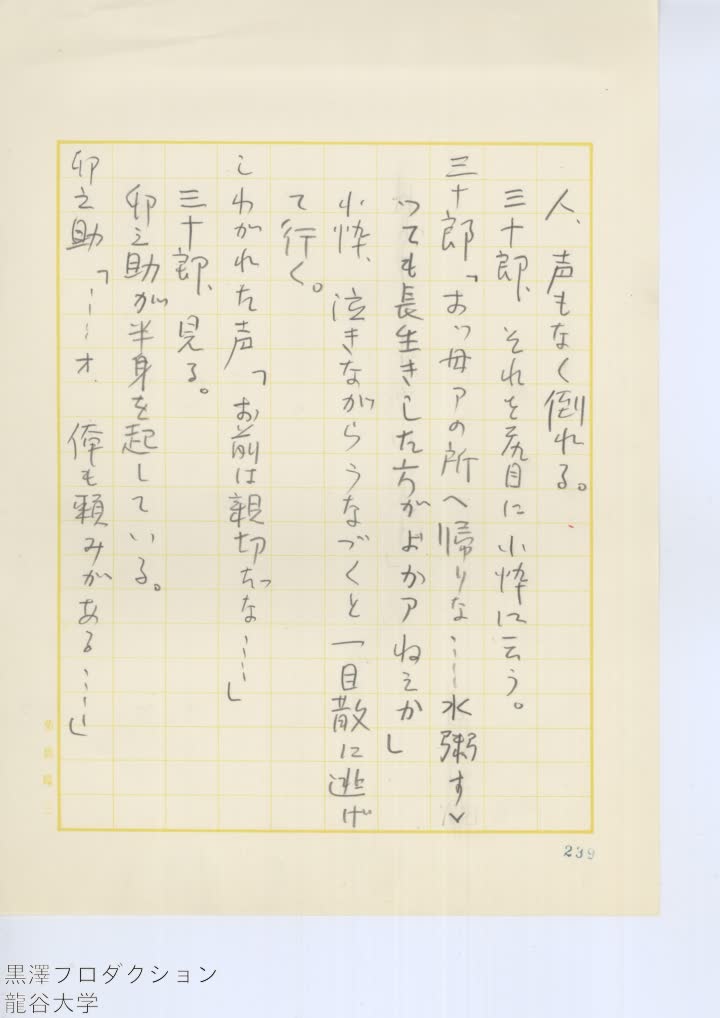 人、声もなく倒れる。
三十郎、それを尻目に小忰に云う。
三十郎「おッ母アの所へ帰りな……水粥すゝ
っても長生きした方がよかアねえか」
小忰、泣きながらうなづくと一目散に逃げ
て行く。
しわがれた声「お前は親切だな……」
三十郎、見る。
卯之助が半身を起している。
卯之助「……オ、俺も頼みがある……」
239
黒澤プロダクション
龍谷大学